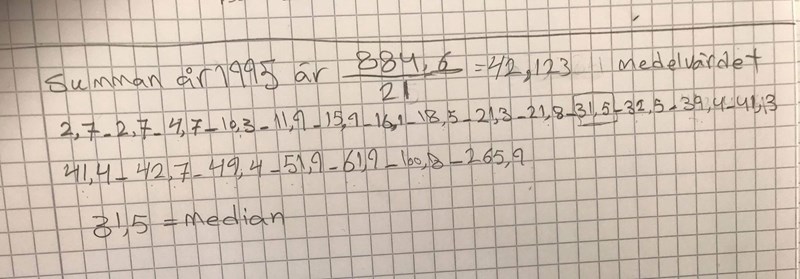 Summan år 1995 är 884,6 / 21 = 42,123 medelvärdet
2,7 - 2,7 - 4,7 - 10,3 - 11,9 - 15,9 - 16,1 - 18,5 - 21,3 - 21,8 - 31,5 - 32,5 - 39,4 - 41,3
41,4 - 42,7 - 49,4 - 51,9 - 61,9 - 100,8 - 265,9
31,5 = median